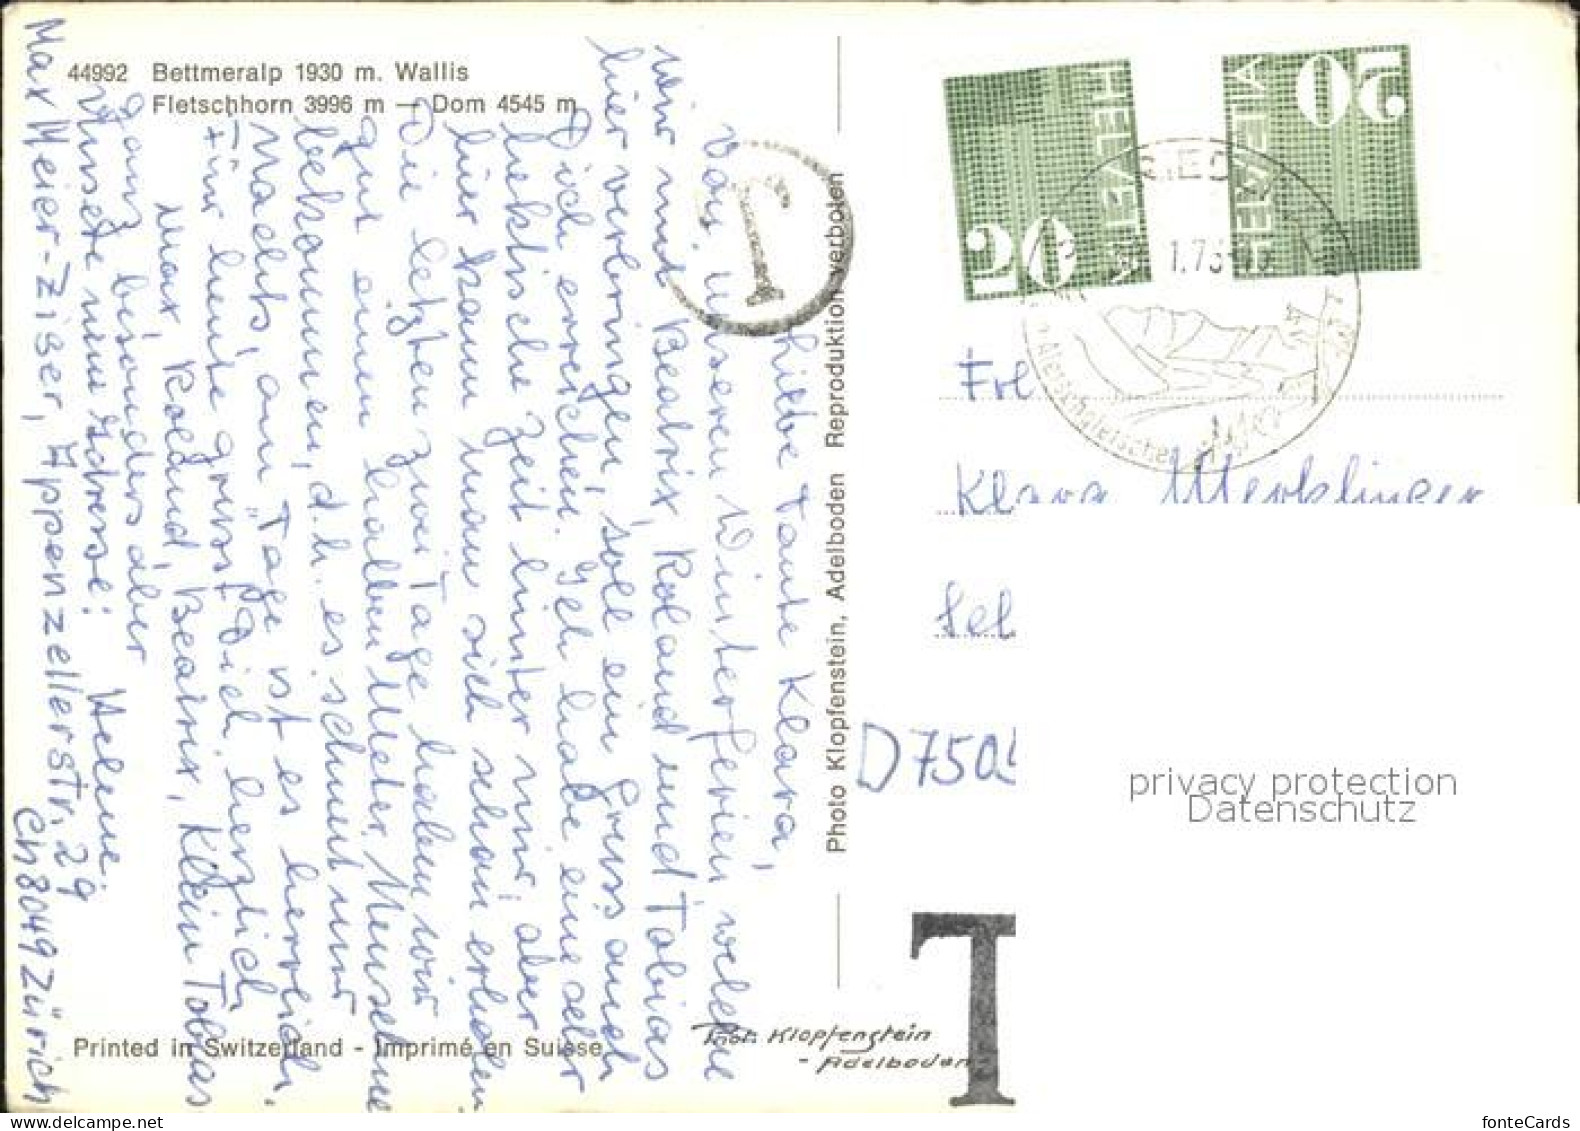 44992 Bettmeralp 1930 m. Wallis
Fletschhorn 3996 m — Dom 4545 m
Liebe Tante Klara,
Von unseren Winterferien, welche
wir mit Beatrix, Roland und Tobias
hier verbringen, soll ein Gruss auch
Dich erreichen. Ich habe eine sehr
hektische Zeit hinter mir, aber
hier kann man sich schon erholen.
Die letzten zwei Tage haben wir
gut einen halben Meter Neuschnee
bekommen, d.h. es schneit nur
nachts, am "Tage ist es herrlich.
Für heute grüsst Dich herzlich
Max, Roland, Beatrix, Klein Tobias
ganz besonders aber
Helene.
Unsere neue Adresse:
Max Meier-Ziser, Appenzellerstr. 29
CH 8049 Zürich
Printed in Switzerland - Imprimé en Suisse
Photo Klopfenstein, Adelboden Reproduktion verboten
Phot. Klopfenstein
- Adelboden -
T
HELVETIA
20
HELVETIA
20
RIED
1.73
Aletschgletscher
Frl
Klara
Sel
D 750
T
privacy protection
Datenschutz
www.delcampe.net
fonteCards